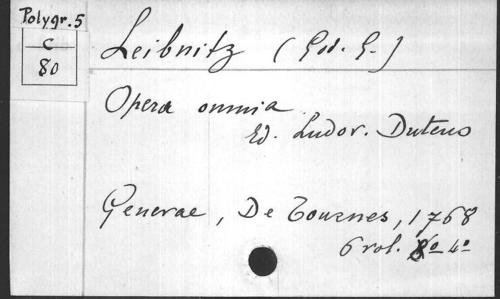 Polygr. 5
C
80
Leibnitz (God. G.)
Opera omnia
Ed. Ludov. Dutens
Genevae, De Tournes, 1768
6 vol. 4°